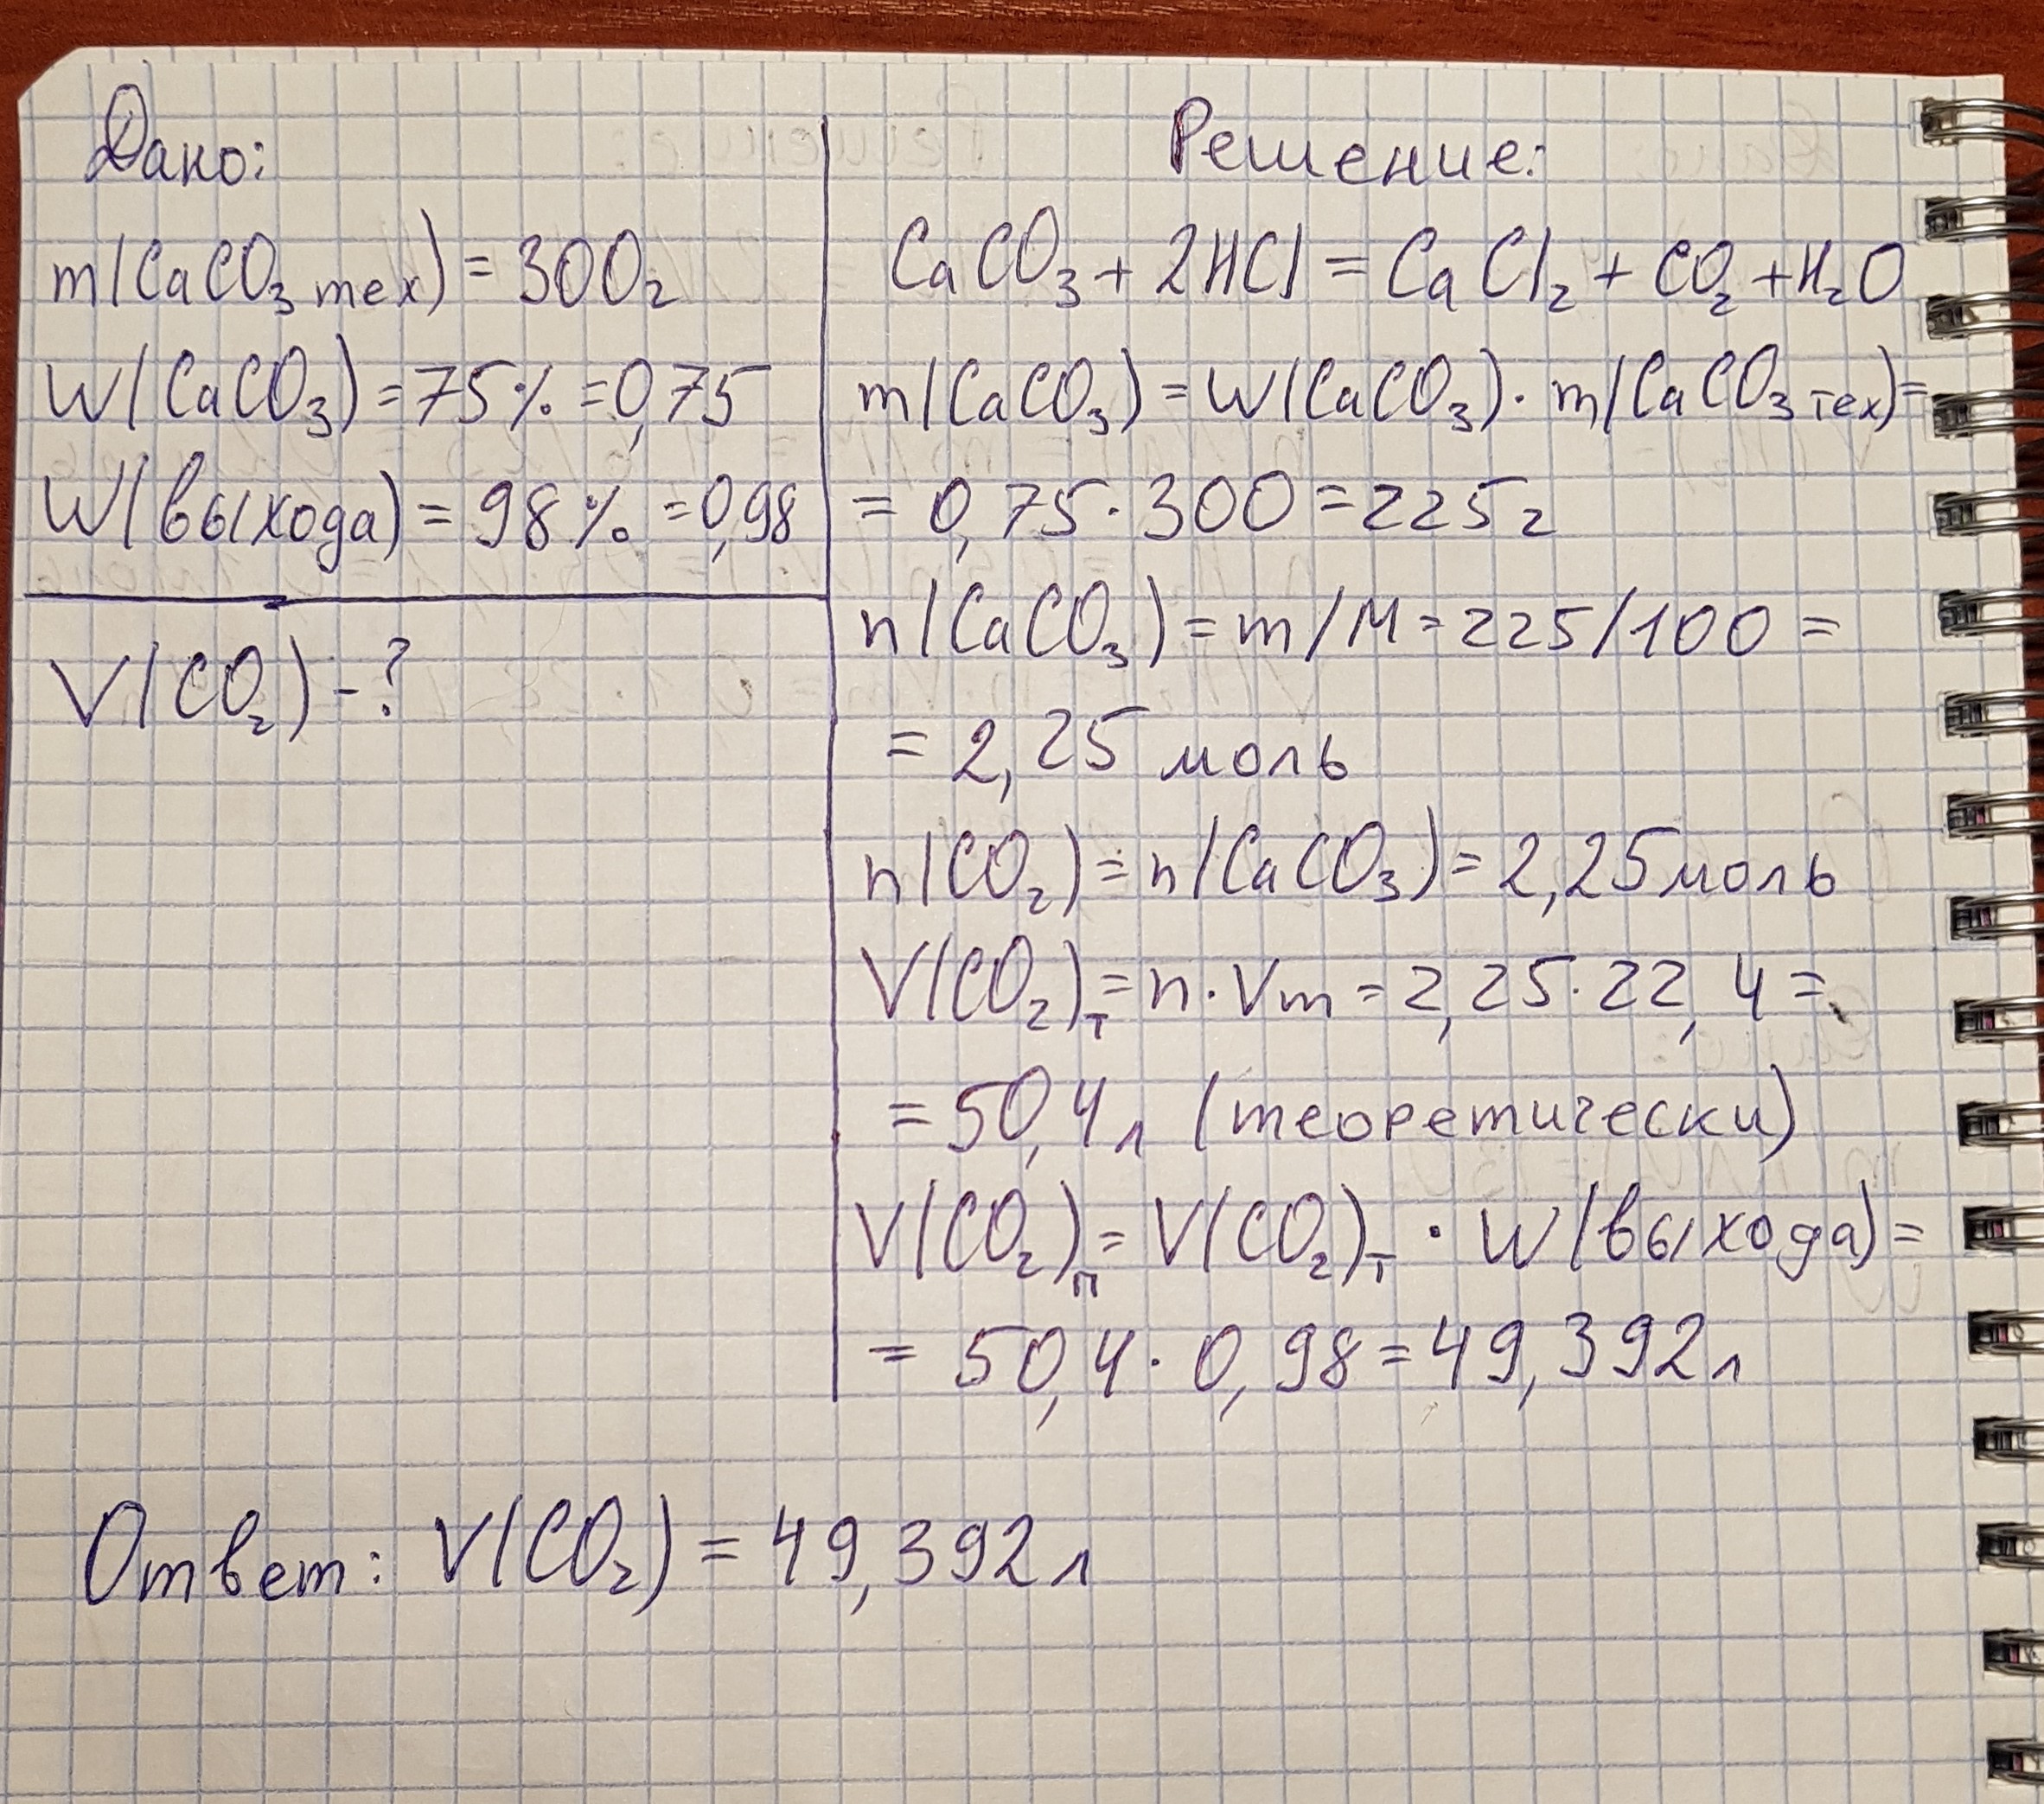 Дано:
m(CaCO₃ тех) = 300г
W(CaCO₃) = 75% = 0,75
W(выхода) = 98% = 0,98
V(CO₂) - ?
Решение:
CaCO₃ + 2HCl = CaCl₂ + CO₂ + H₂O
m(CaCO₃) = W(CaCO₃) · m(CaCO₃ тех) =
= 0,75 · 300 = 225г
n(CaCO₃) = m/M = 225/100 =
= 2,25 моль
n(CO₂) = n(CaCO₃) = 2,25 моль
V(CO₂)т = n · Vm = 2,25 · 22,4 =
= 50,4л (теоретически)
V(CO₂)п = V(CO₂)т · W(выхода) =
= 50,4 · 0,98 = 49,392л
Ответ: V(CO₂) = 49,392л